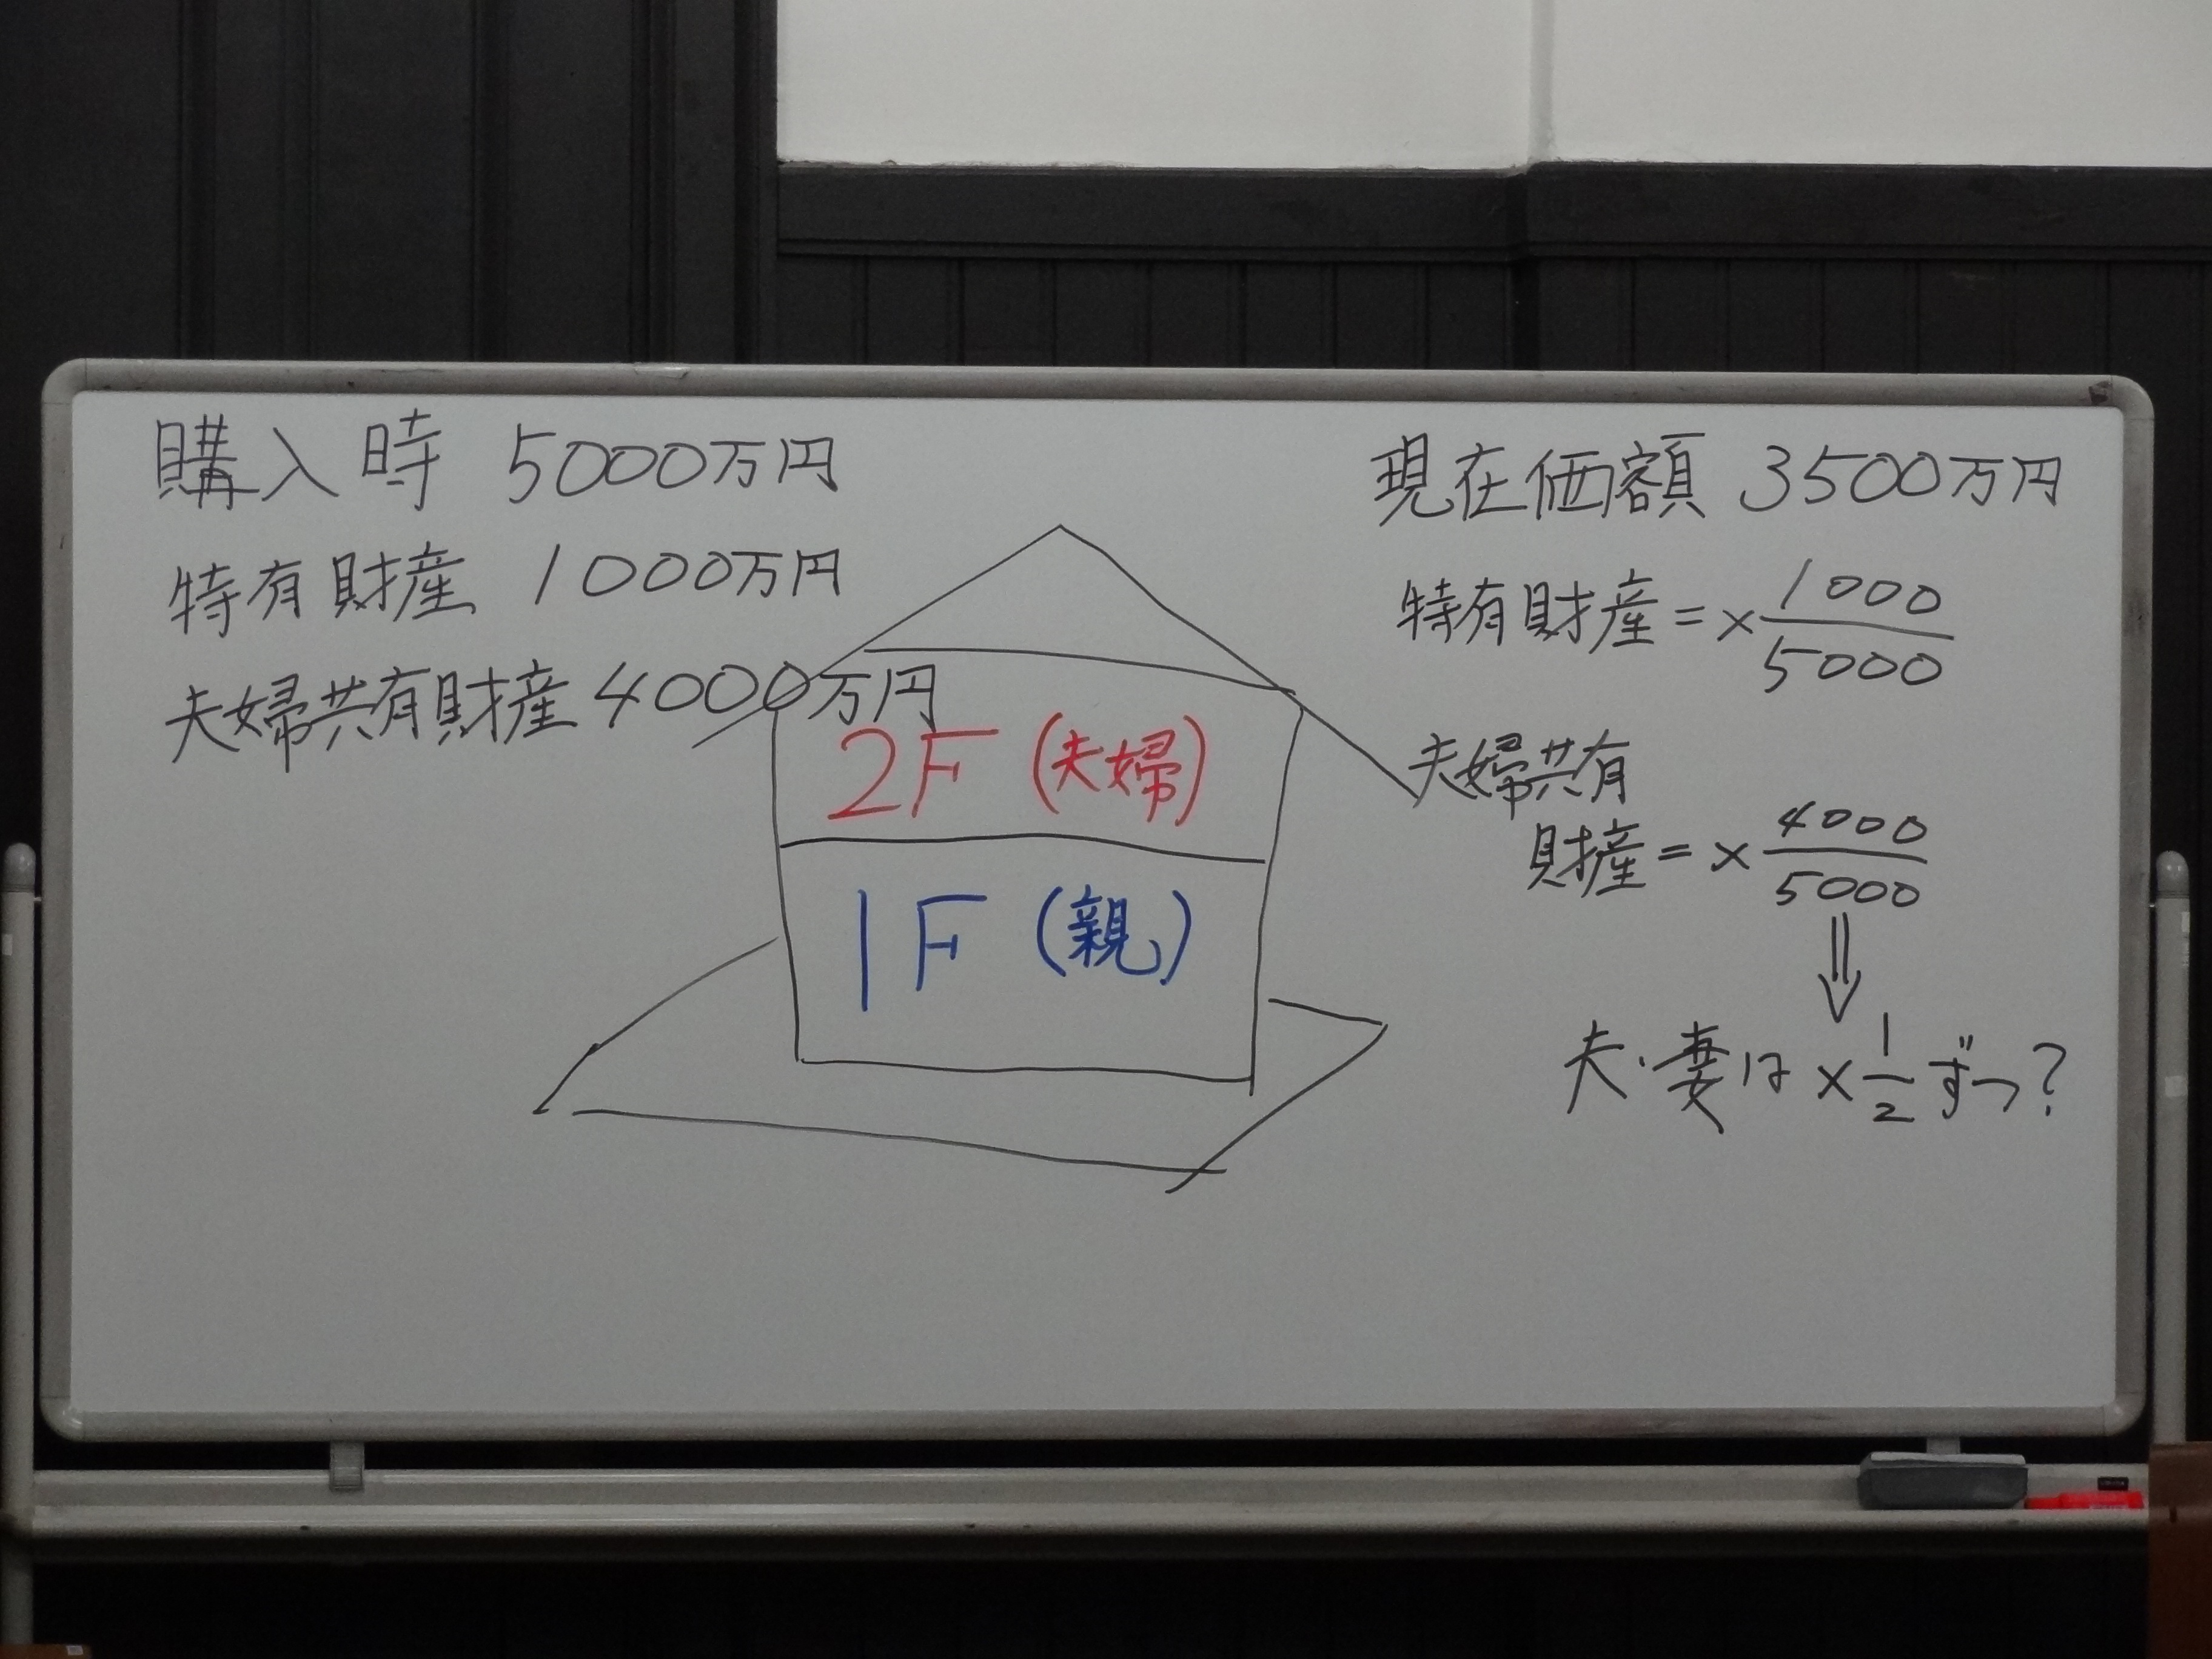 購入時 5000万円
特有財産 1000万円
夫婦共有財産 4000万円
2F (夫婦)
1F (親)
現在価額 3500万円
特有財産 = × 1000/5000
夫婦共有
財産 = × 4000/5000
⇓
夫・妻は × 1/2 ずつ?